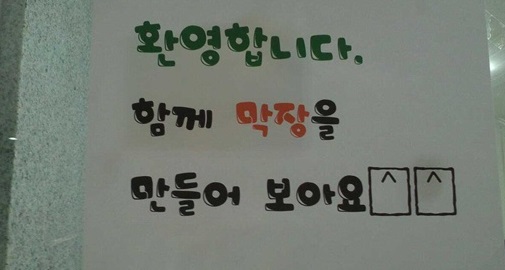 환영합니다.
함께 막장을
만들어 보아요^^